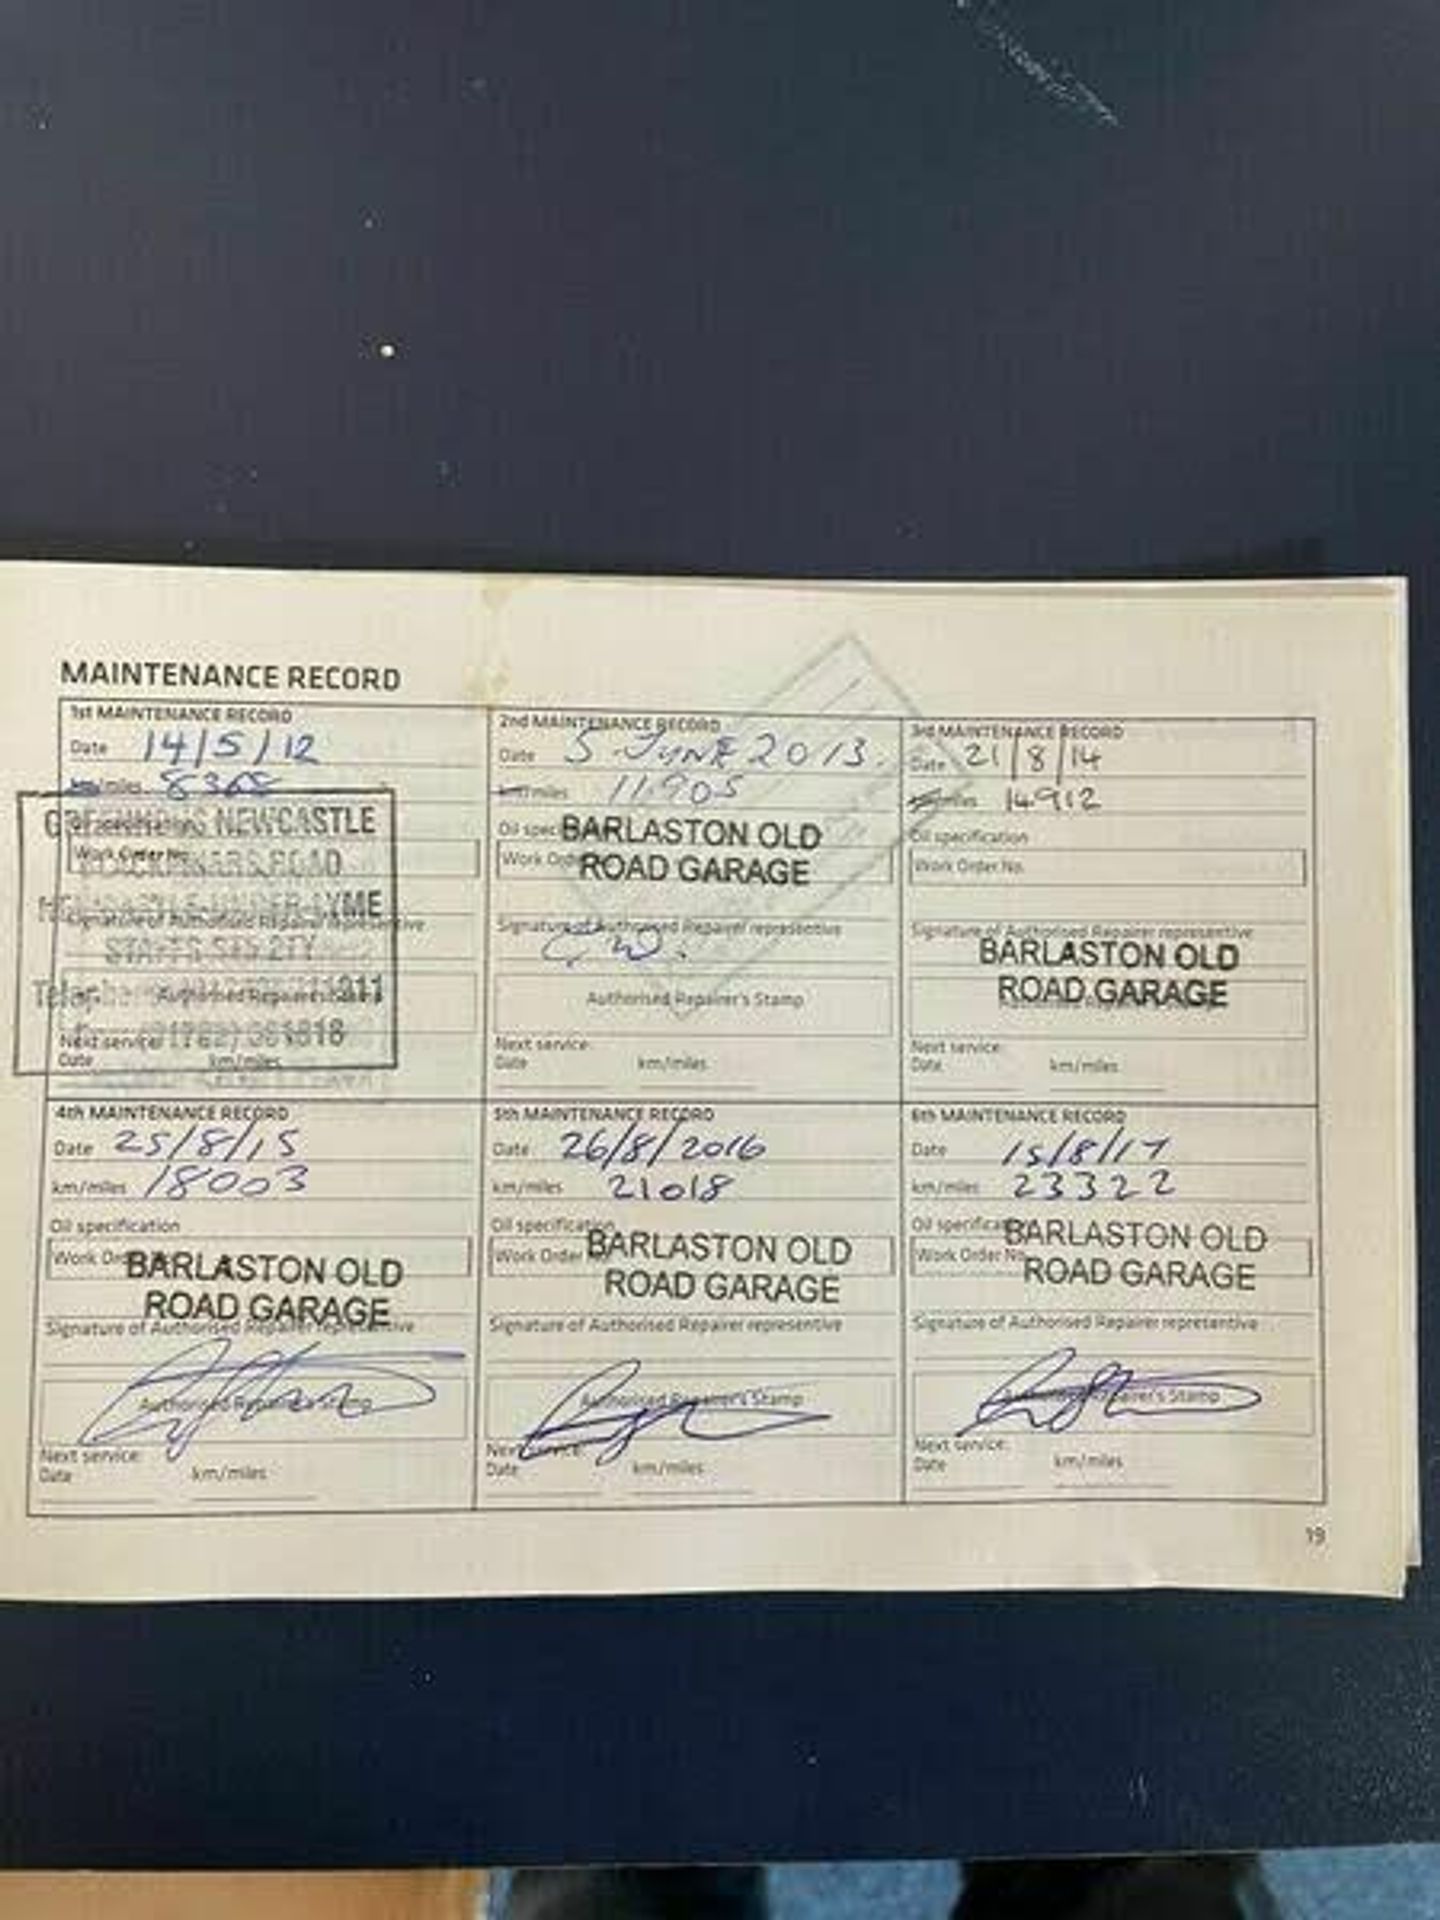 MAINTENANCE RECORD
1st MAINTENANCE RECORD
Date 14/5/12
km/miles 8368
NEWCASTLE
Work Order No.
ROAD
NEWCASTLE-UNDER-LYME
Signature of Authorised Repairer representative
STAFFS ST5 2TY
Authorised Repairer's Stamp
Next service:
Date km/miles
2nd MAINTENANCE RECORD
Date 5 JUNE 2013.
km/miles 11905
Oil
BARLASTON OLD
Work
ROAD GARAGE
Signature of Authorised Repairer representative
C.W.
Authorised Repairer's Stamp
Next service:
Date km/miles
3rd MAINTENANCE RECORD
Date 21/8/14
miles 14912
Oil specification
Work Order No.
Signature of Authorised Repairer representative
BARLASTON OLD
ROAD GARAGE
Next service:
Date km/miles
4th MAINTENANCE RECORD
Date 25/8/15
km/miles 18003
Oil specification
Work
BARLASTON OLD
ROAD GARAGE
Signature of Authorised Repairer representative
Authorised Repairer's Stamp
Next service:
Date km/miles
5th MAINTENANCE RECORD
Date 26/8/2016
km/miles 21018
Oil specification
BARLASTON OLD
Work Order
ROAD GARAGE
Signature of Authorised Repairer representative
Authorised Repairer's Stamp
Next service:
Date km/miles
6th MAINTENANCE RECORD
Date 15/8/17
km/miles 23322
Oil
BARLASTON OLD
Work Order No.
ROAD GARAGE
Signature of Authorised Repairer representative
Authorised Repairer's Stamp
Next service:
Date km/miles
19